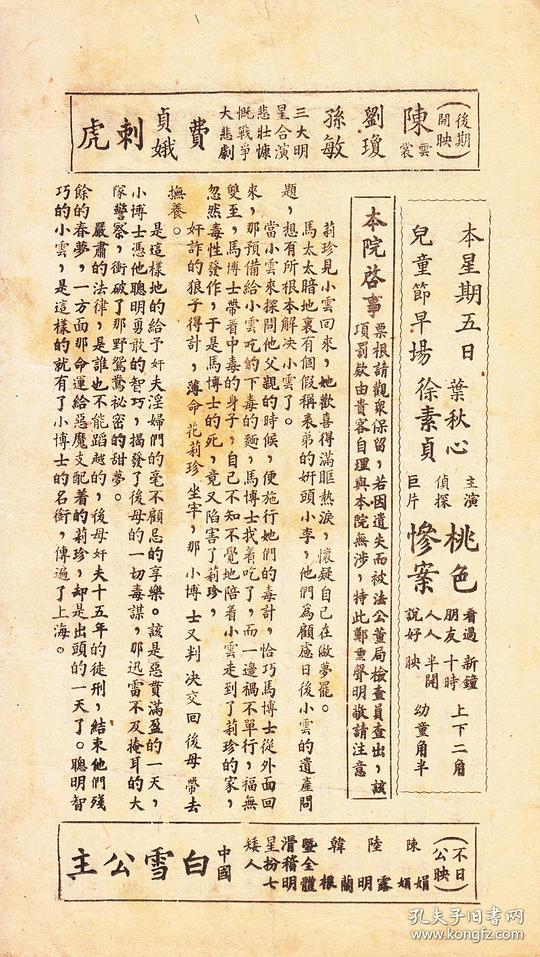 (後期開映)
陳雲裳
劉瓊
孫敏
三大明
星合演
悲壯慷
慨戰爭
大悲劇
費
貞娥
刺
虎
本星期五日
兒童節早場
葉秋心
徐素貞
主演
偵探
巨片
桃色
慘案
看過
朋友
人人
說好
新鐘
十時
半開
映
上下二角
幼童角半
本院啓事
票根請觀衆保留，若因遺失而被法公董局檢查員查出，該
項罰欵由貴客自理與本院無涉，特此鄭重聲明敬請注意
莉珍見小雲回來，她歡喜得滿眶熱淚，懷疑自己在做夢罷。
馬太太暗地裏有個假稱表弟的奸頭小李，他們為顧慮日後小雲的遺產問
題，想有所根本解決小雲了。
當小雲來探問他父親的時候，便施行她們的毒計，恰巧馬博士從外面回
來，那預備給小雲吃的下毒的麵，馬博士找着吃了，而一邊禍不單行，福無
雙至，馬博士帶着中毒的身子，自己不知不覺地陪着小雲走到了莉珍的家，
忽然毒性發作，于是馬博士的死，竟又陷害了莉珍，
奸詐的狼子得計，薄命花莉珍坐牢，那小博士又判決交回後母帶去
撫養。
是這樣地的給予奸夫淫婦們的毫不顧忌的享樂。該是惡貫滿盈的一天，
小博士憑他聰明勇敢的智巧，揭發了後母的一切毒謀，那迅雷不及掩耳的大
隊警察，衝破了那野鴛鴦祕密的甜夢。
嚴肅的法律，是誰也不能蹈越的，後母奸夫十五年的徒刑，結束他們殘
餘的春夢，一方面那命運給惡魔支配着的莉珍，却是出頭的一天了。聰明智
巧的小雲，是這樣的就有了小博士的名銜，傳遍了上海。
(不日公映)
陳娟娟
陸露明
韓蘭根
暨全體
滑稽明
星扮七
矮人
中國
白雪公主
孔夫子旧书网
www.kongfz.com